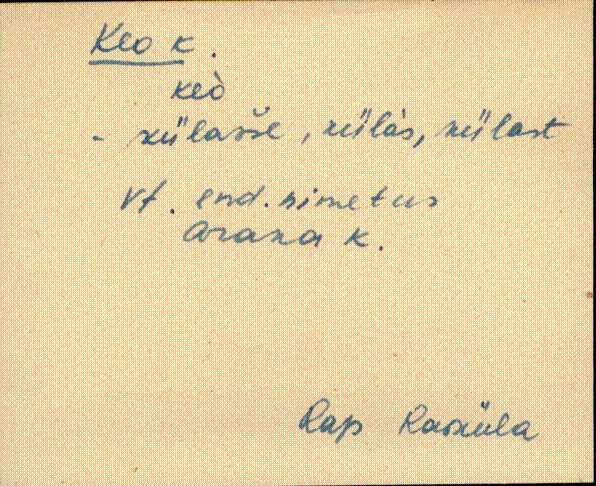 Keo k.
keò
- külasse, külàs, külast
vt. end. nimetus
Arana k.
Rap Rasküla